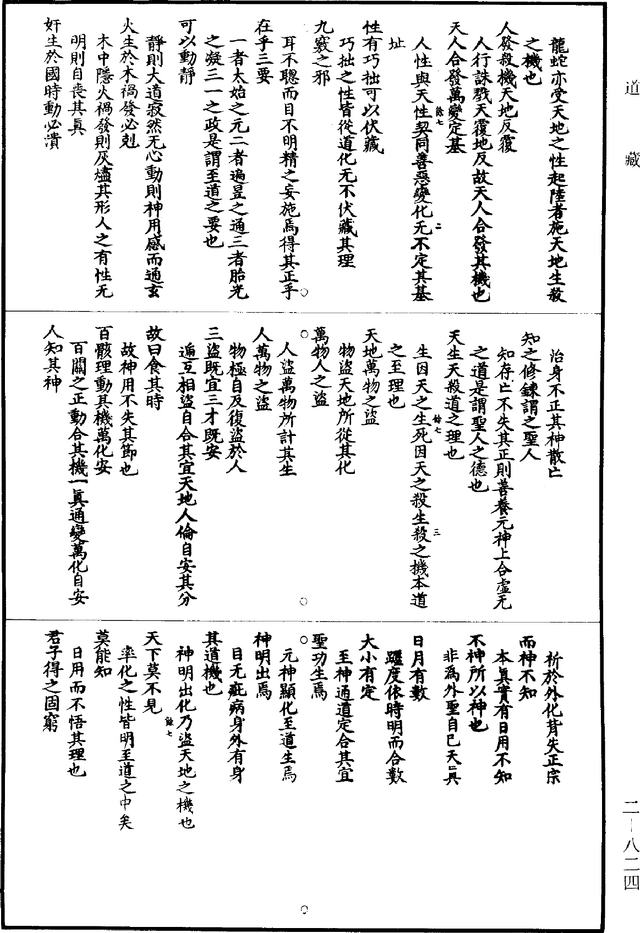 道藏
龍蛇亦受天地之性起陸者施天地生殺
之機也
人發殺機天地反覆
人行誅戮天覆地反故天人合發其機也
天人合發萬變定基
人性與天性契同善惡變化无不定其基
址
性有巧拙可以伏藏
巧拙之性皆從道化无不伏藏其理
九竅之邪
耳不聰而目不明精之妄施焉得其正乎
在乎三要
一者太始之元二者遍昱之通三者胎光
之凝三一之政是謂至道之要也
可以動靜
靜則大道寂然无心動則神用感而通玄
火生於木禍發必剋
木中隱火禍發則灰燼其形人之有性无
明則自喪其真
奸生於國時動必潰
餘七
二
治身不正其神散亡
知之修鍊謂之聖人
知存亡不失其正則善養元神上合虛无
之道是謂聖人之德也
天生天殺道之理也
生因天之生死因天之殺生殺之機本道
之至理也
天地萬物之盜
物盜天地所從其化
萬物人之盜
人盜萬物所計其生
人萬物之盜
物極自及復盜於人
三盜既宜三才既安
遍互相盜自合其宜天地人倫自安其分
故曰食其時
故神用不失其節也
百骸理動其機萬化安
百關之正動合其機一真通變萬化自安
人知其神
餘七
三
祈於外化背失正宗
而神不知
本真實有日用不知
不神所以神也
非為外聖自己天真
日月有數
躔度依時明而合數
大小有定
至神通道定合其宜
聖功生焉
元神顯化至道生焉
神明出焉
目无疵病身外有身
其道機也
神明出化乃盜天地之機也
天下莫不見
率化之性皆明至道之中矣
莫能知
日用而不悟其理也
君子得之固窮
餘七
二－八二四